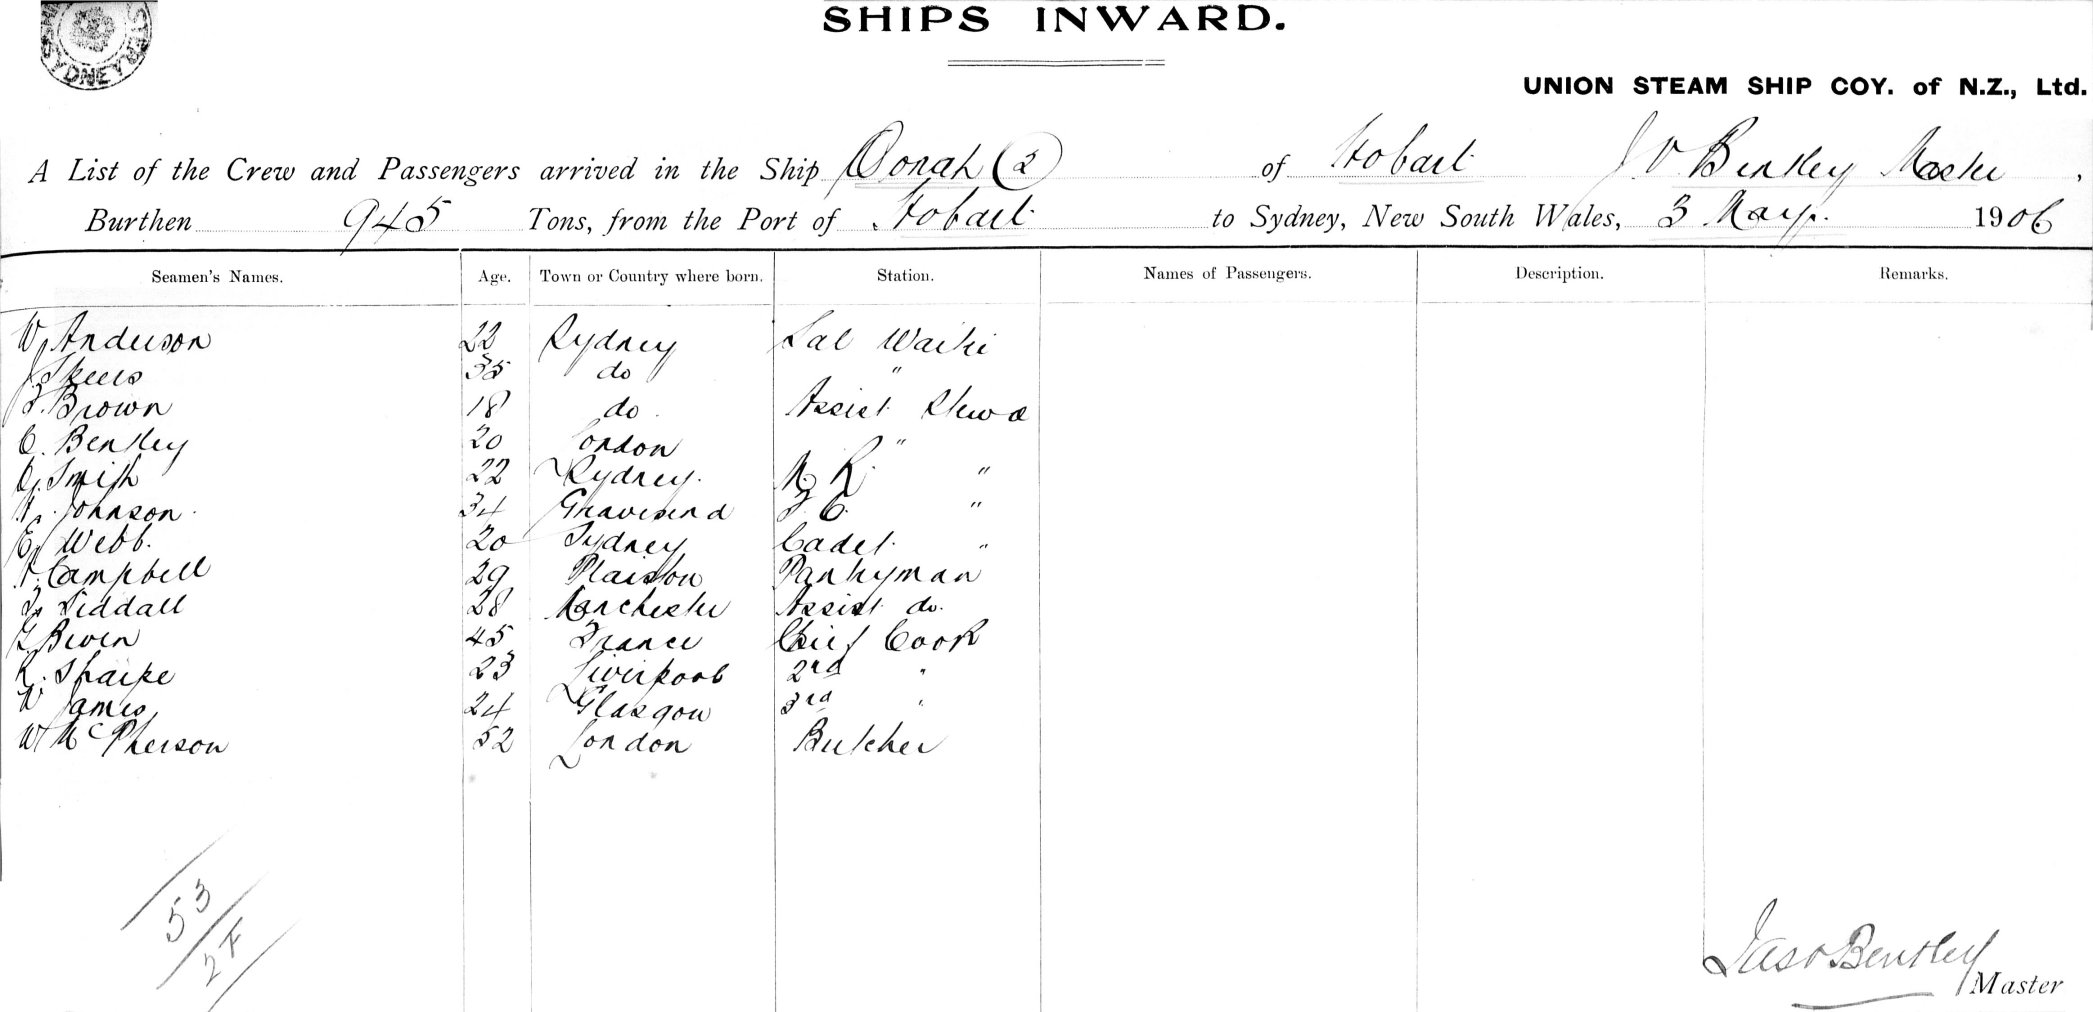 SYDNEY
SHIPS INWARD.
UNION STEAM SHIP COY. of N.Z., Ltd.
A List of the Crew and Passengers arrived in the Ship Oonah (2) of Hobart J V Bentley Master,
Burthen 945 Tons, from the Port of Hobart to Sydney, New South Wales, 3 May. 1906
Seamen's Names. Age. Town or Country where born. Station. Names of Passengers. Description. Remarks.
W Anderson 22 Sydney Sal
J. Skeers 35 do "
F. Brown 18 do. Assist Stewd
C. Bentley 20 London "
G. Smith 22 Sydney. R "
Johnson. 34 Gravesend F. C. "
E. Webb. 20 Sydney Cadet "
Campbell 29 Plaistow Pantryman
Siddall 28 Manchester Assist do.
Biven 45 France Chief Cook
R. Sharpe 23 Liverpool 2nd "
W James 24 Glasgow 3rd "
W McPherson 52 London Butcher
53
Jas V Bentley
Master